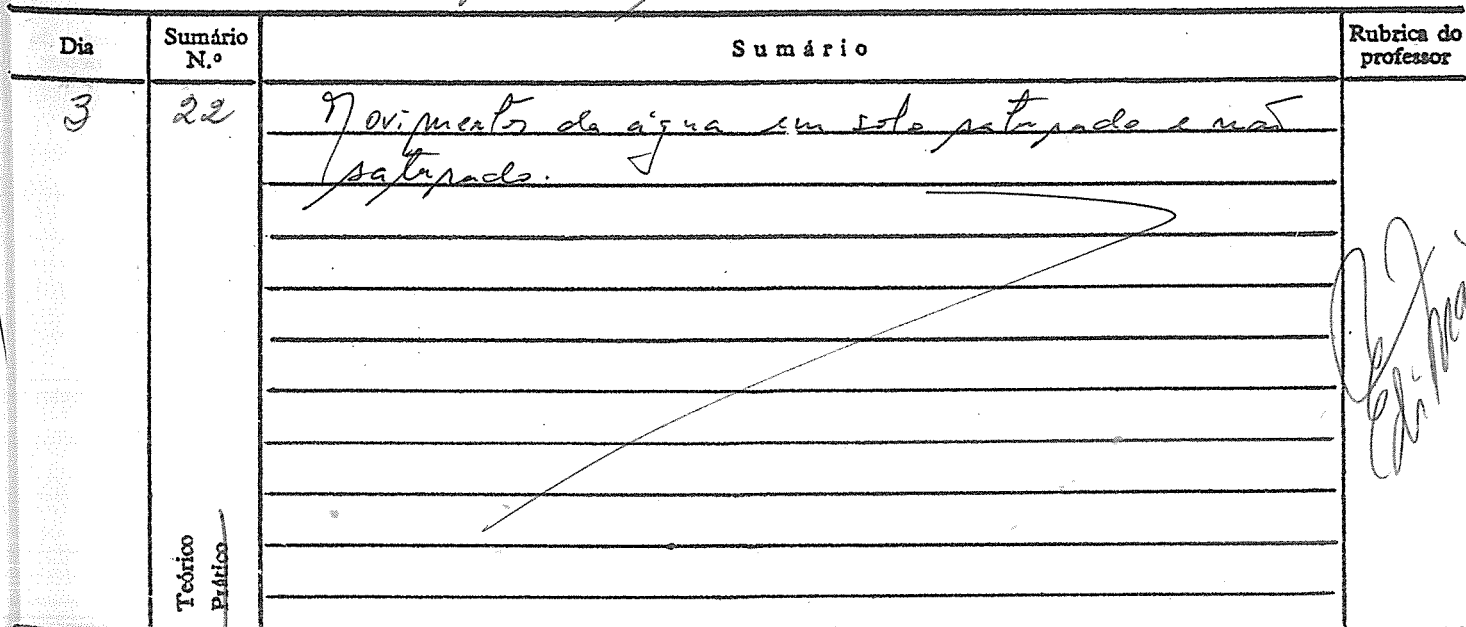 Dia
Sumário N.º
Sumário
Rubrica do professor
3
22
Movimentos da água em solo saturado e não
saturado.
Teórico
Prático